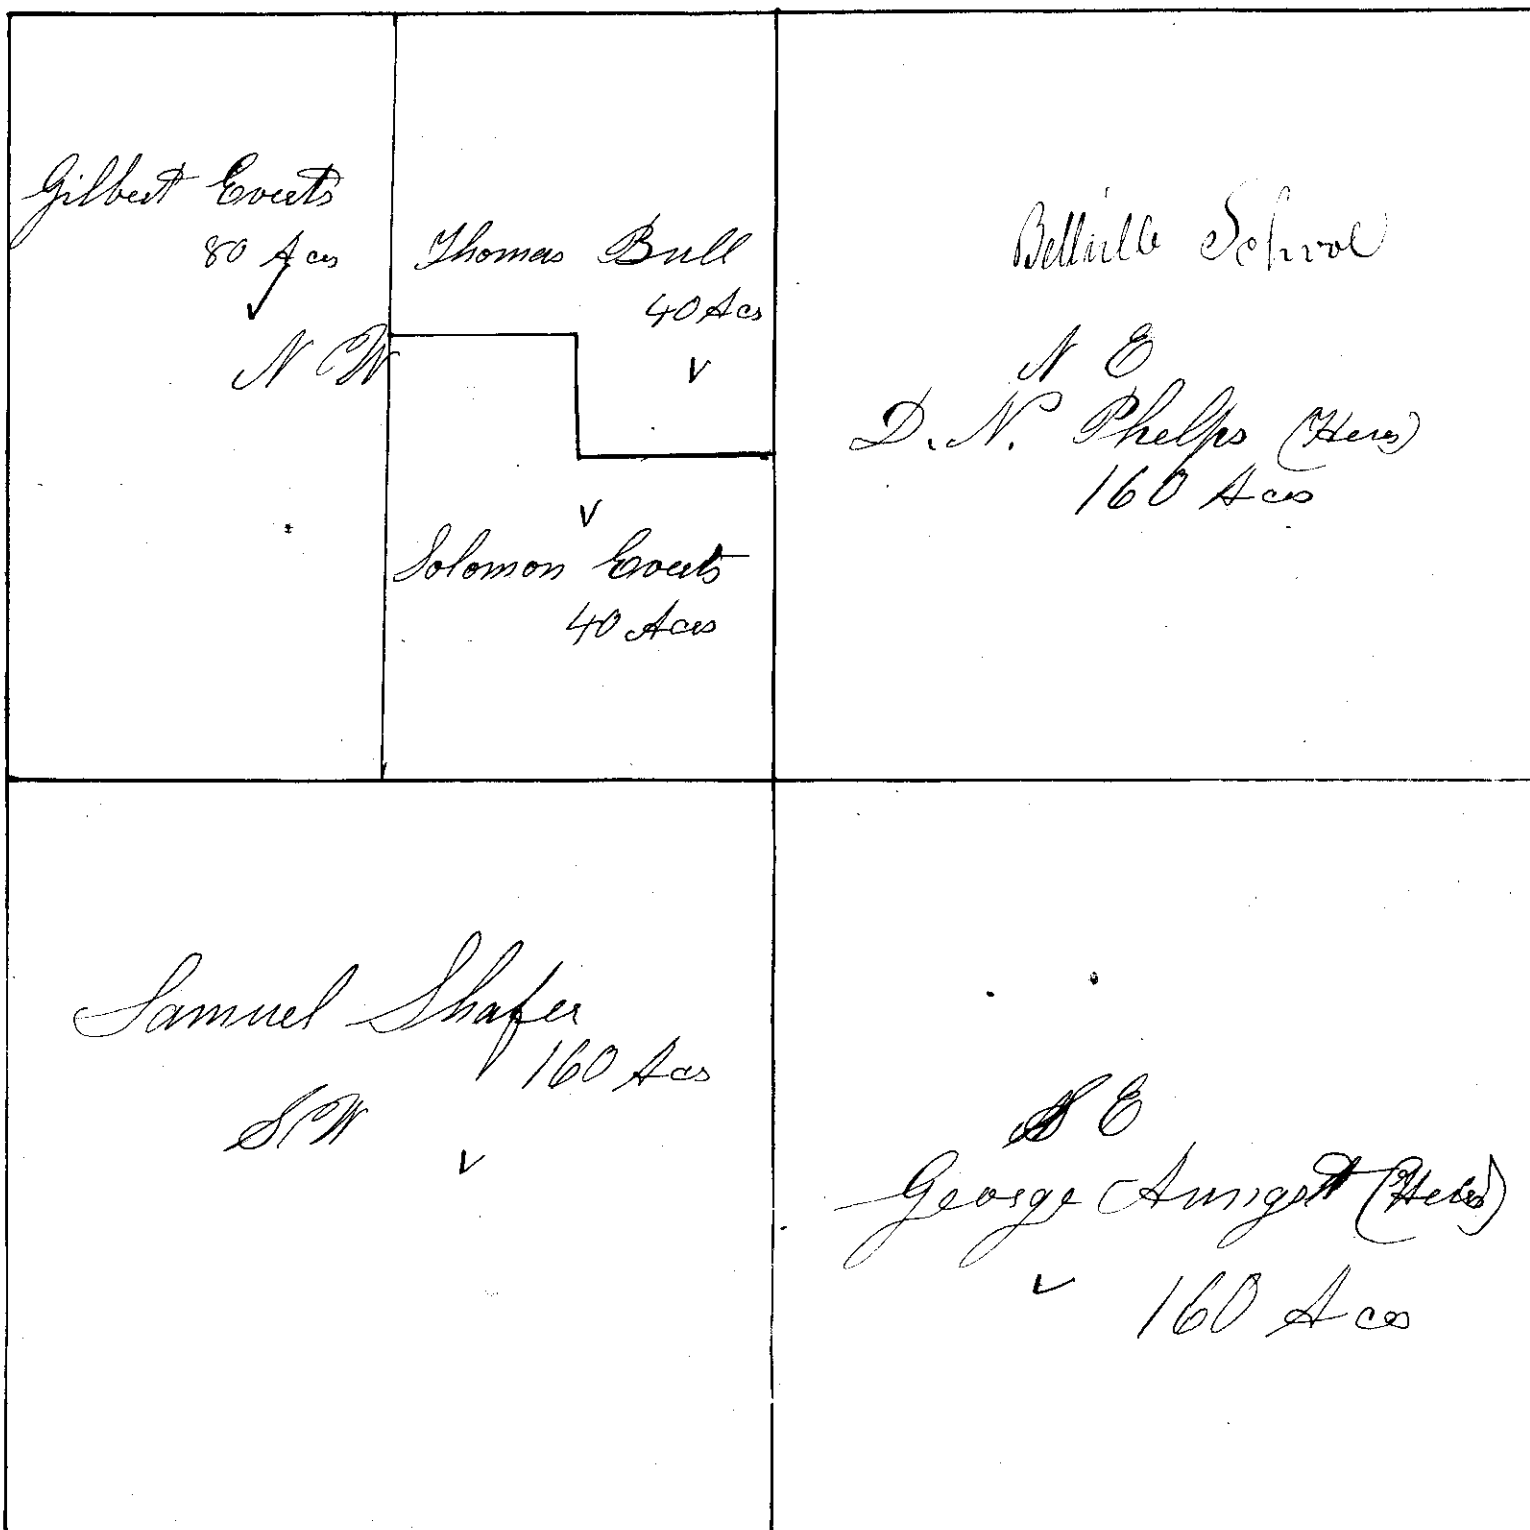 Gilbert Everts
80 Acs
N W
Thomas Bull
40 Acs
Solomon Everts
40 Acrs
Bellville School
N E
D. N. Phelps (Heirs)
160 Acs
Samuel Shafer
160 Acs
S W
S E
George Aungst (Heirs)
160 Acs